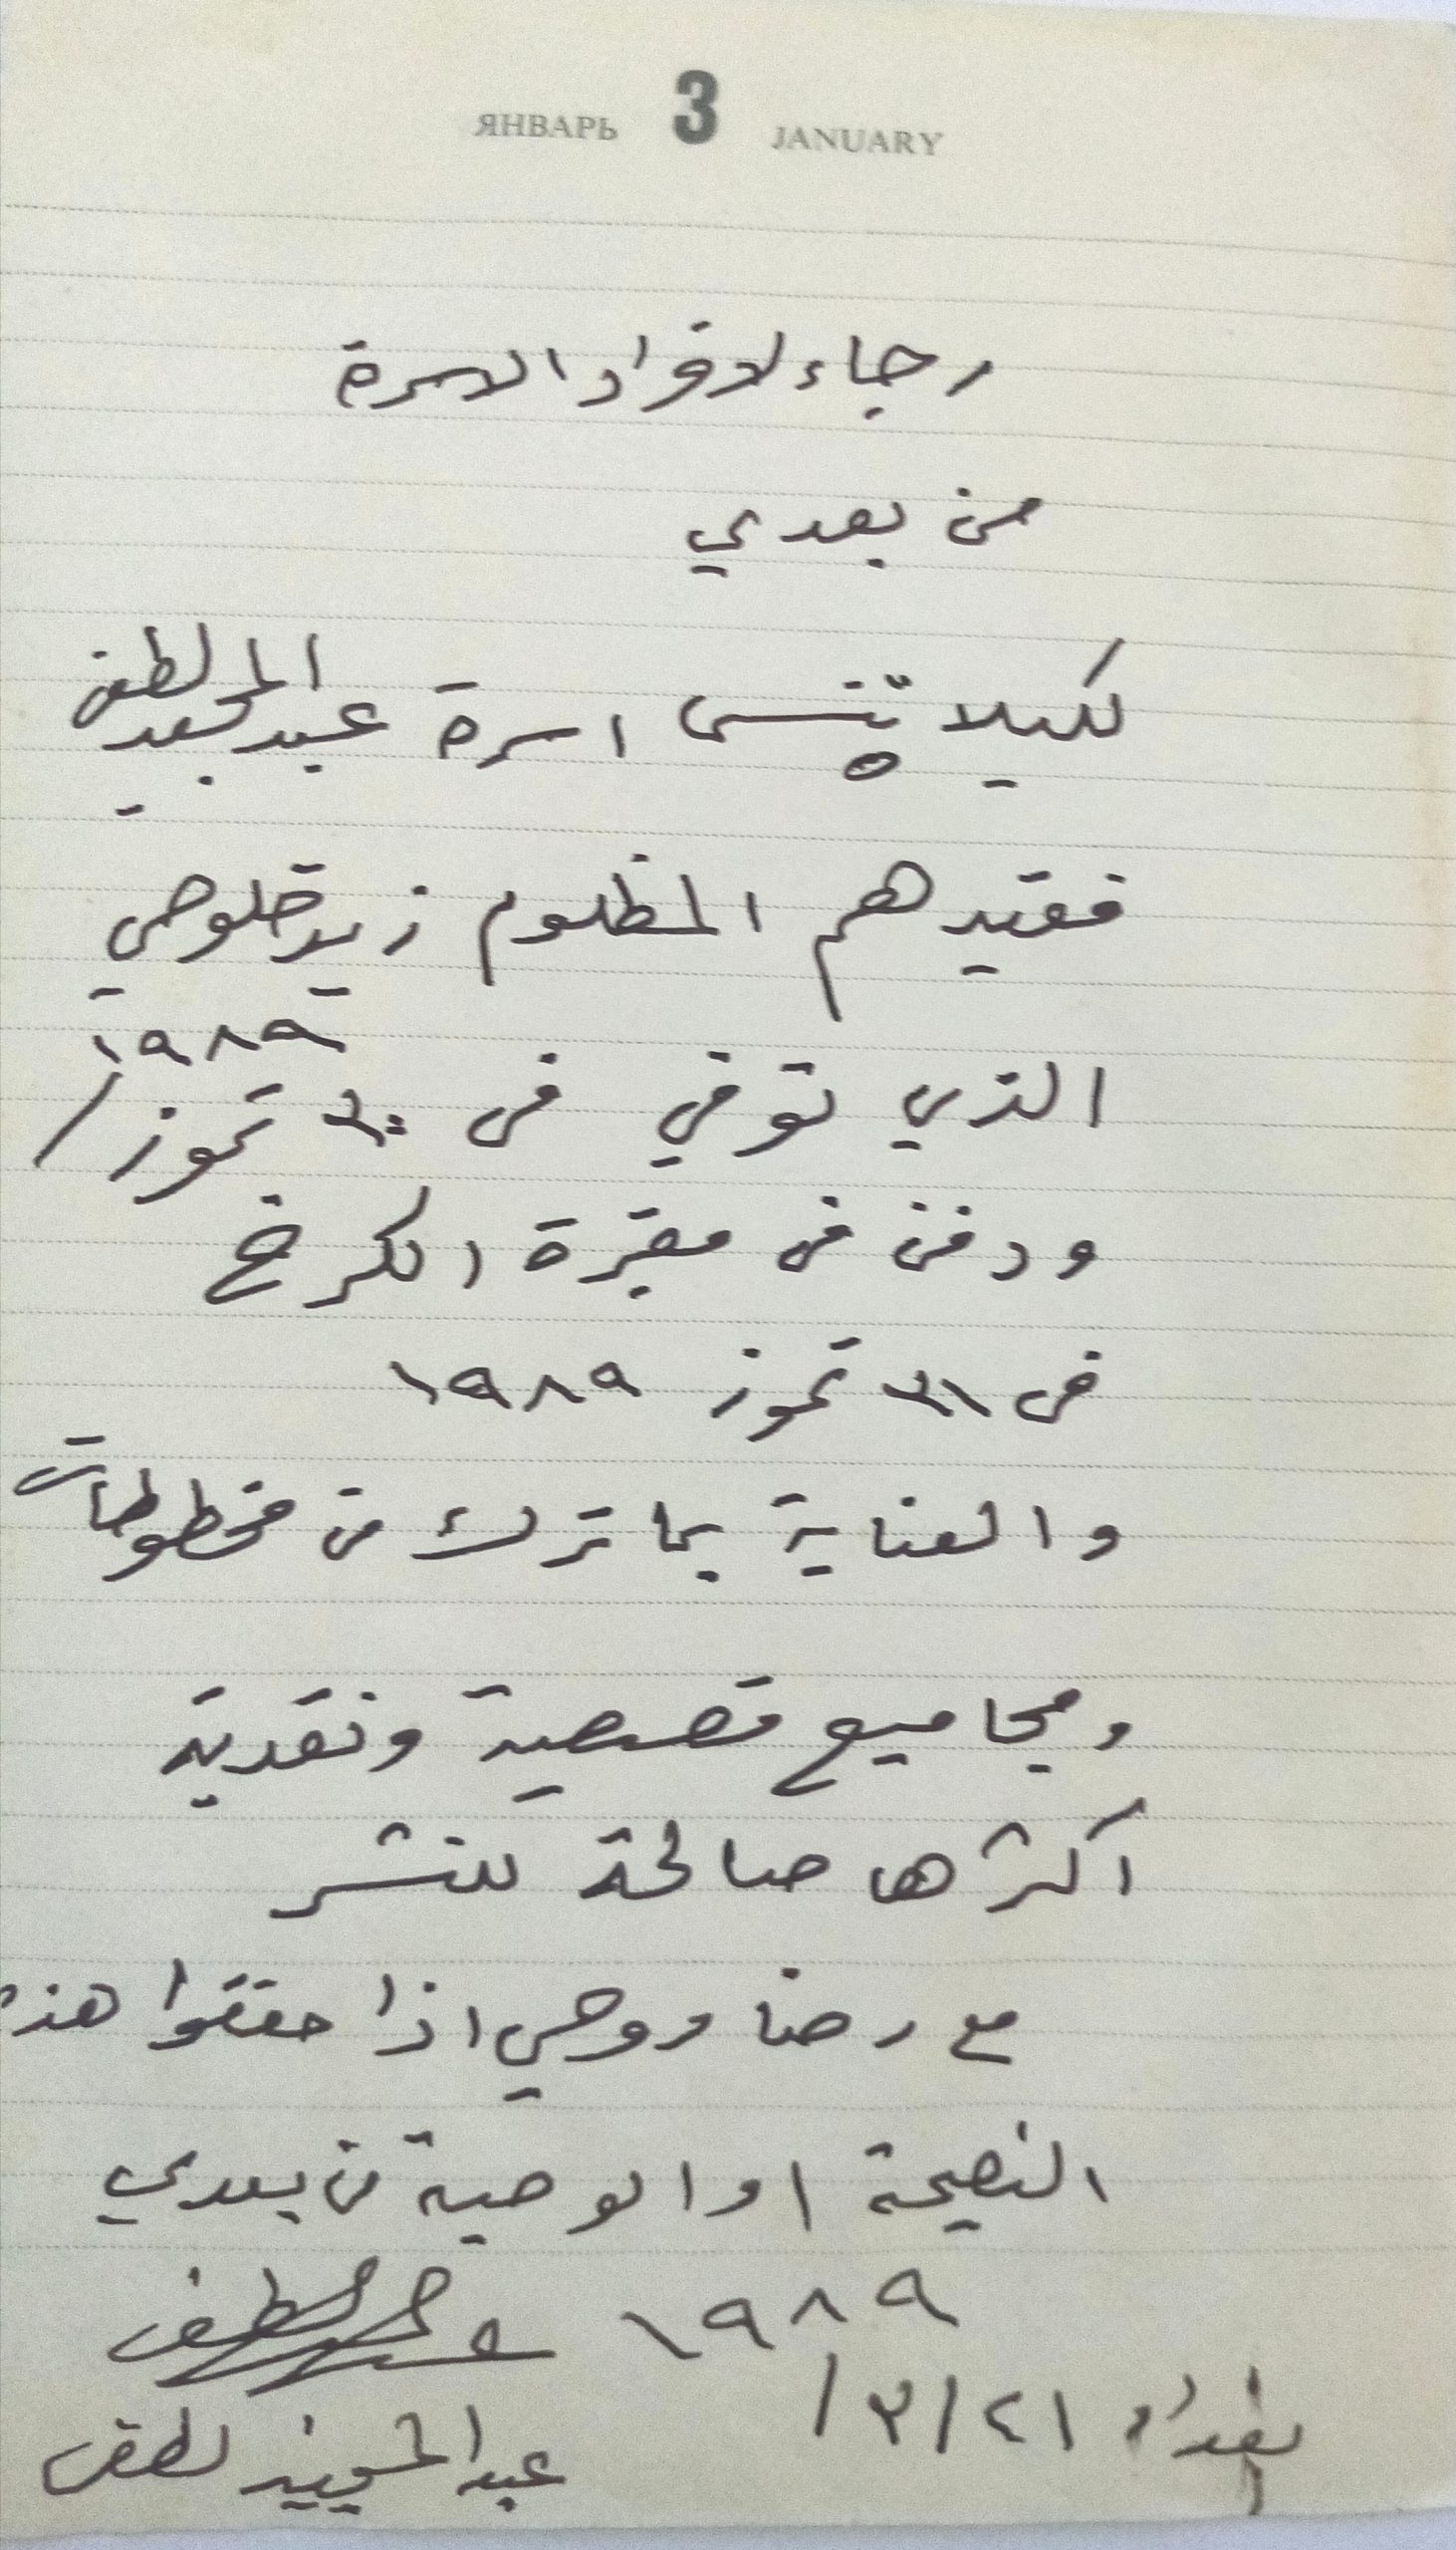 ЯНВАРЬ 3 JANUARY
رجاء لافراد الاسرة
من بعدي
لكيلا تنسى اسرة عبد المجيد لطفي
فقيدهم المظلوم زيد خلوصي
الذي توفي في ٣٠ تموز / ١٩٨٩
ودفن في مقبرة الكرخ
في ٣١ تموز ١٩٨٩
والعناية بما ترك من مخطوطات
ومجاميع قصصية ونقدية
اكثرها صالحة للنشر
مع رضا روحي اذا حققوا هذه
النصيحة او الوصية من بعدي
١٩٨٩
بغداد
عبد المجيد لطفي